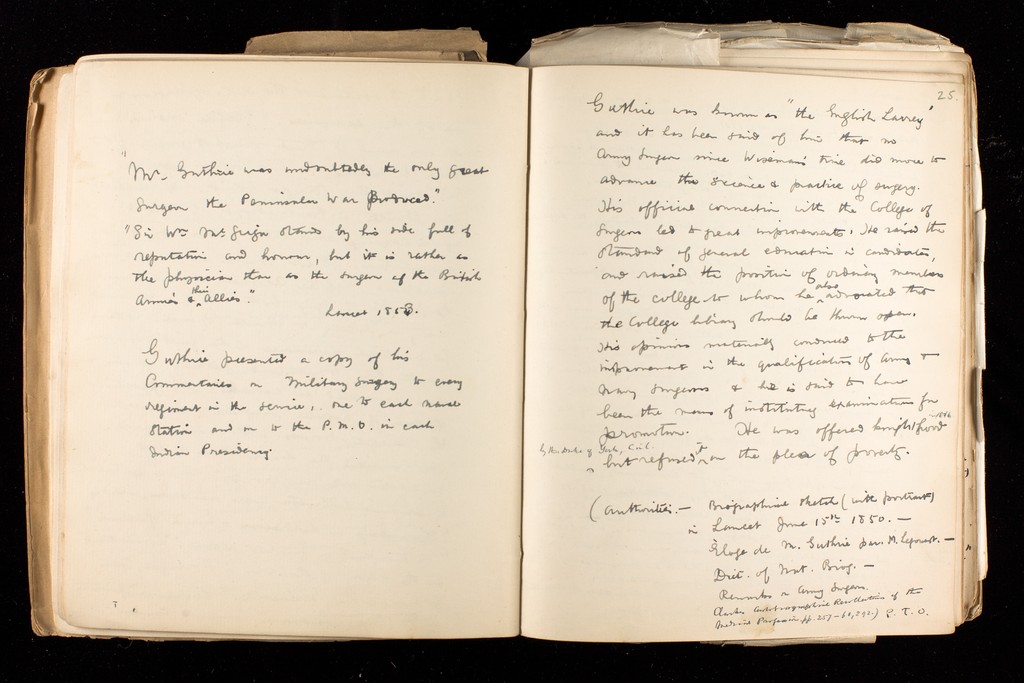 "Mr. Guthrie was undoubtedly the only great
Surgeon the Peninsular War produced."
"Sir Wm. McGrigor stands by his side full of
reputation and honour, but it is rather as
the physician than as the surgeon of the British
Armies & their Allies."
Lancet 1850.
Guthrie presented a copy of his
Commentaries on Military Surgery to every
regiment in the service, one to each naval
Station and on to the P.M.O. in each
Indian Presidency.
25.
Guthrie was known as "the English Larrey"
and it has been said of him that no
Army Surgeon since Wiseman's time did more to
advance the science & practice of surgery.
His official connection with the College of
Surgeons led to great improvements. He raised the
Standard of general education in candidates,
and raised the position of ordinary members
of the college to whom he also advocated that
the College library should be thrown open.
His opinions materially conduced to the
improvement in the qualification of Army &
Navy Surgeons & he is said to have
been the means of instituting examinations for
promotion. He was offered knighthood
by the Duke of York, C.in C.
but refused it on the plea of poverty.
(Authorities. — Biographical Sketch (with portrait)
in Lancet June 15th 1850. —
Éloge de M. Guthrie par M. Legouest. —
Dict. of Nat. Biog. —
Army Surgeon.
Clarke's Autobiographical Recollections of the
Medical Profession pp. 257–60, 292.) P.T.O.